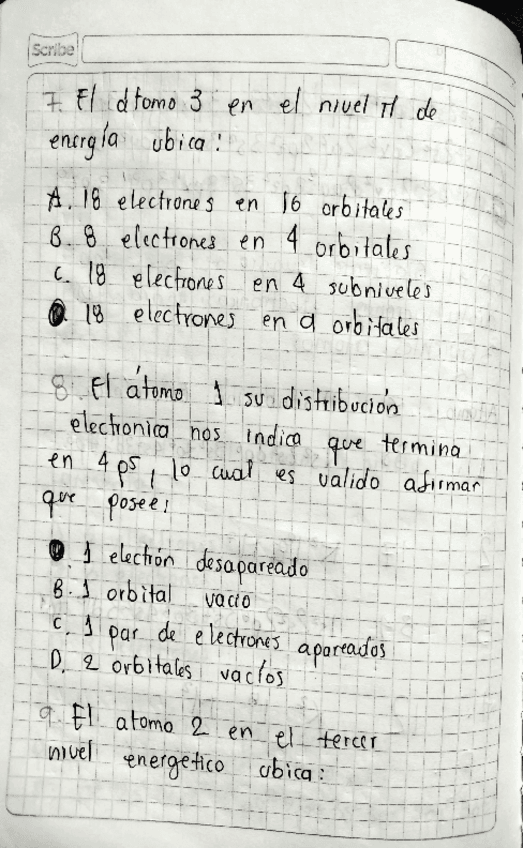 Scribe
7. El átomo 3 en el nivel 4 de
energía ubica:
A. 18 electrones en 16 orbitales
B. 8 electrones en 4 orbitales
C. 18 electrones en 4 subniveles
18 electrones en 9 orbitales
8. El átomo 1 su distribución
electronica nos indica que termina
en 4p5, lo cual es valido afirmar
que posee:
1 electrón desapareado
B. 1 orbital vacio
C. 1 par de electrones apareados
D. 2 orbitales vacíos
9. El atomo 2 en el tercer
nivel energetico ubica: